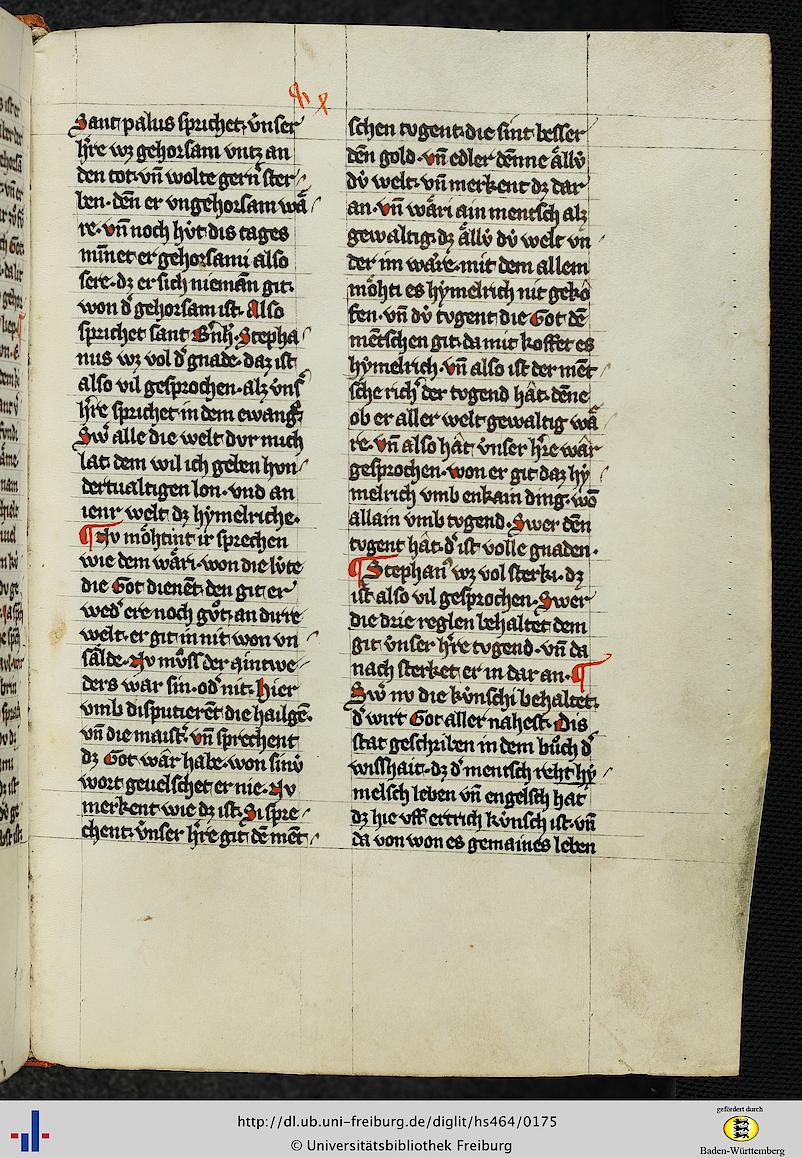 Sant palus sprichet. v̊nser
h̊re wz gehorsam vntz an
den tot. vn̄ wolte gern ster
ben. dēn er vngehorsam wå
re. vn̄ noch hv̊t dis tages
mīnet er gehorsami also
sere. dz er sich niemān git.
won d͛ gehorsam ist. Also
sprichet sant B͛nh͛. Stepha
nus wz vol d͛ gnade. daz ist
also vil gesprochen. alz v̊ns͛
h̊re sprichet in dem ewang͛
Sw͛ alle die welt dvr mich
lat dem wil ich geben hvn
dertualtigen lon. vnd an
ienr welt dz hymelriche.
¶ Nv mo̊htint ir sprechen
wie dem wåri. won die lv̊te
die Got dienēt. den git er
wed͛ ere noch gv̊t. an dirre
welt. er git in nit won vn
sålde. Nv mv̊ss der aintwe
ders war sin. od͛ nit. Hier
vmb disputierēt die hailgē.
vn̄ die maist͛. vn̄ sprechent
dz Got wâr habe. won sinv̊
wort geuelschet er nie. Nv
merkent wie dz ist. Si spre
chent. v̊nser h̊re git dē mēt
schen tvgent. die sint besser
dēn gold. vn̄ edler dēnne ållv̊
dv̊ welt. vn̄ merkent dz dar
an. vn̄ wåri ain mentsch alz
gewaltig. dz ållv̊ dv̊ welt vn
der im wåre. mit dem allem
mo̊hti es hymelrich nit gekô
fen. vn̄ dv̊ tvgent die Got dē
mētschen git. da mit koffet es
hymelrich. vn̄ also ist der mēt
sche rich͛ der tvgend hât. dēne
ob er aller welt gewaltig wå
re. vn̄ also hât v̊nser h̊re wâr
gesprochen. won er git daz hy
melrich vmb enkain ding. wō
allain vmb tvgend. Swer dēn
tvgent hât. d͛ ist volle gnaden.
¶ Stephan᷒ wz vol sterki. dz
ist also vil gesprochen. Swer
die drie reglen behaltet dem
git v̊nser h̊re tvgend. vn̄ da
nach sterket er in dar an. ¶
Sw͛ nv die kv̊nschi behaltet.
d͛ wirt Got aller nahest. Dis
stat geschriben in dem bůch d͛
wisshait. dz d͛ mentsch reht hy
melsch leben vn̄ engelsch hat
dz hie vff ertrich kv̊nsch ist. vn̄
da von won es gemaines leben
http://dl.ub.uni-freiburg.de/diglit/hs464/0175
© Universitätsbibliothek Freiburg
gefördert durch
Baden-Württemberg